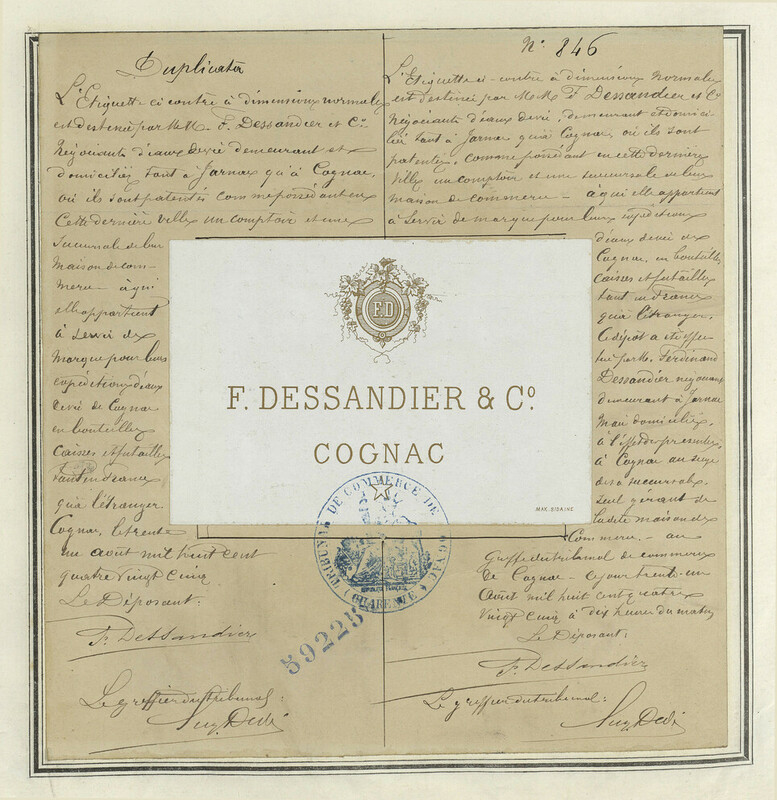 Duplicata
L'Etiquette ci contre à dimensions normales
est destinée par M.M. F. Dessandier et Co
Négociants d'eaux de vie demeurant et
domiciliés tant à Jarnac qu'à Cognac,
où ils sont patentés comme possédant en
Cette dernière ville un comptoir et une
Succursale de leur
Maison de com-
merce - à qui
elle appartient
à servir de
Marque pour leurs
expéditions d'eaux
de vie de Cognac
en bouteilles
Caisses et futailles
tant en France
qu'à l'étranger.
Cognac, le trente
un août mil huit cent
quatre vingt cinq
Le Déposant:
F. Dessandier
Le greffier du tribunal:
No 846
L'Etiquette ci-contre à dimensions normales
est destinée par M.M. F. Dessandier et Co
Négociants d'eaux de vie, demeurant et domici-
liés tant à Jarnac qu'à Cognac, où ils sont
patentés, comme possédant en cette dernière
Ville un comptoir et une succursale de leur
Maison de commerce - à qui elle appartient
à servir de marque pour leurs expéditions
d'eaux de vie de
Cognac, en bouteilles
Caisses et futailles
tant en France
qu'à l'étranger.
Ce dépôt a été effec-
tué par M. Ferdinand
Dessandier négociant
demeurant à Jarnac
Mais domicilié,
à l'effet des présentes,
à Cognac au siège
de sa succursale,
seul gérant de
la dite maison de
Commerce. - au
Greffe du tribunal de commerce
de Cognac - ce jour trente-un
Août mil huit cent quatre
Vingt cinq à dix heures du matin
Le Déposant:
F. Dessandier
Le greffier du tribunal:
F.D
F. DESSANDIER & Co.
COGNAC
MAK. SIBAINE
TRIBUNAL DE COMMERCE DE COGNAC
RÉPUBLIQUE FRANÇAISE
(CHARENTE)
59225